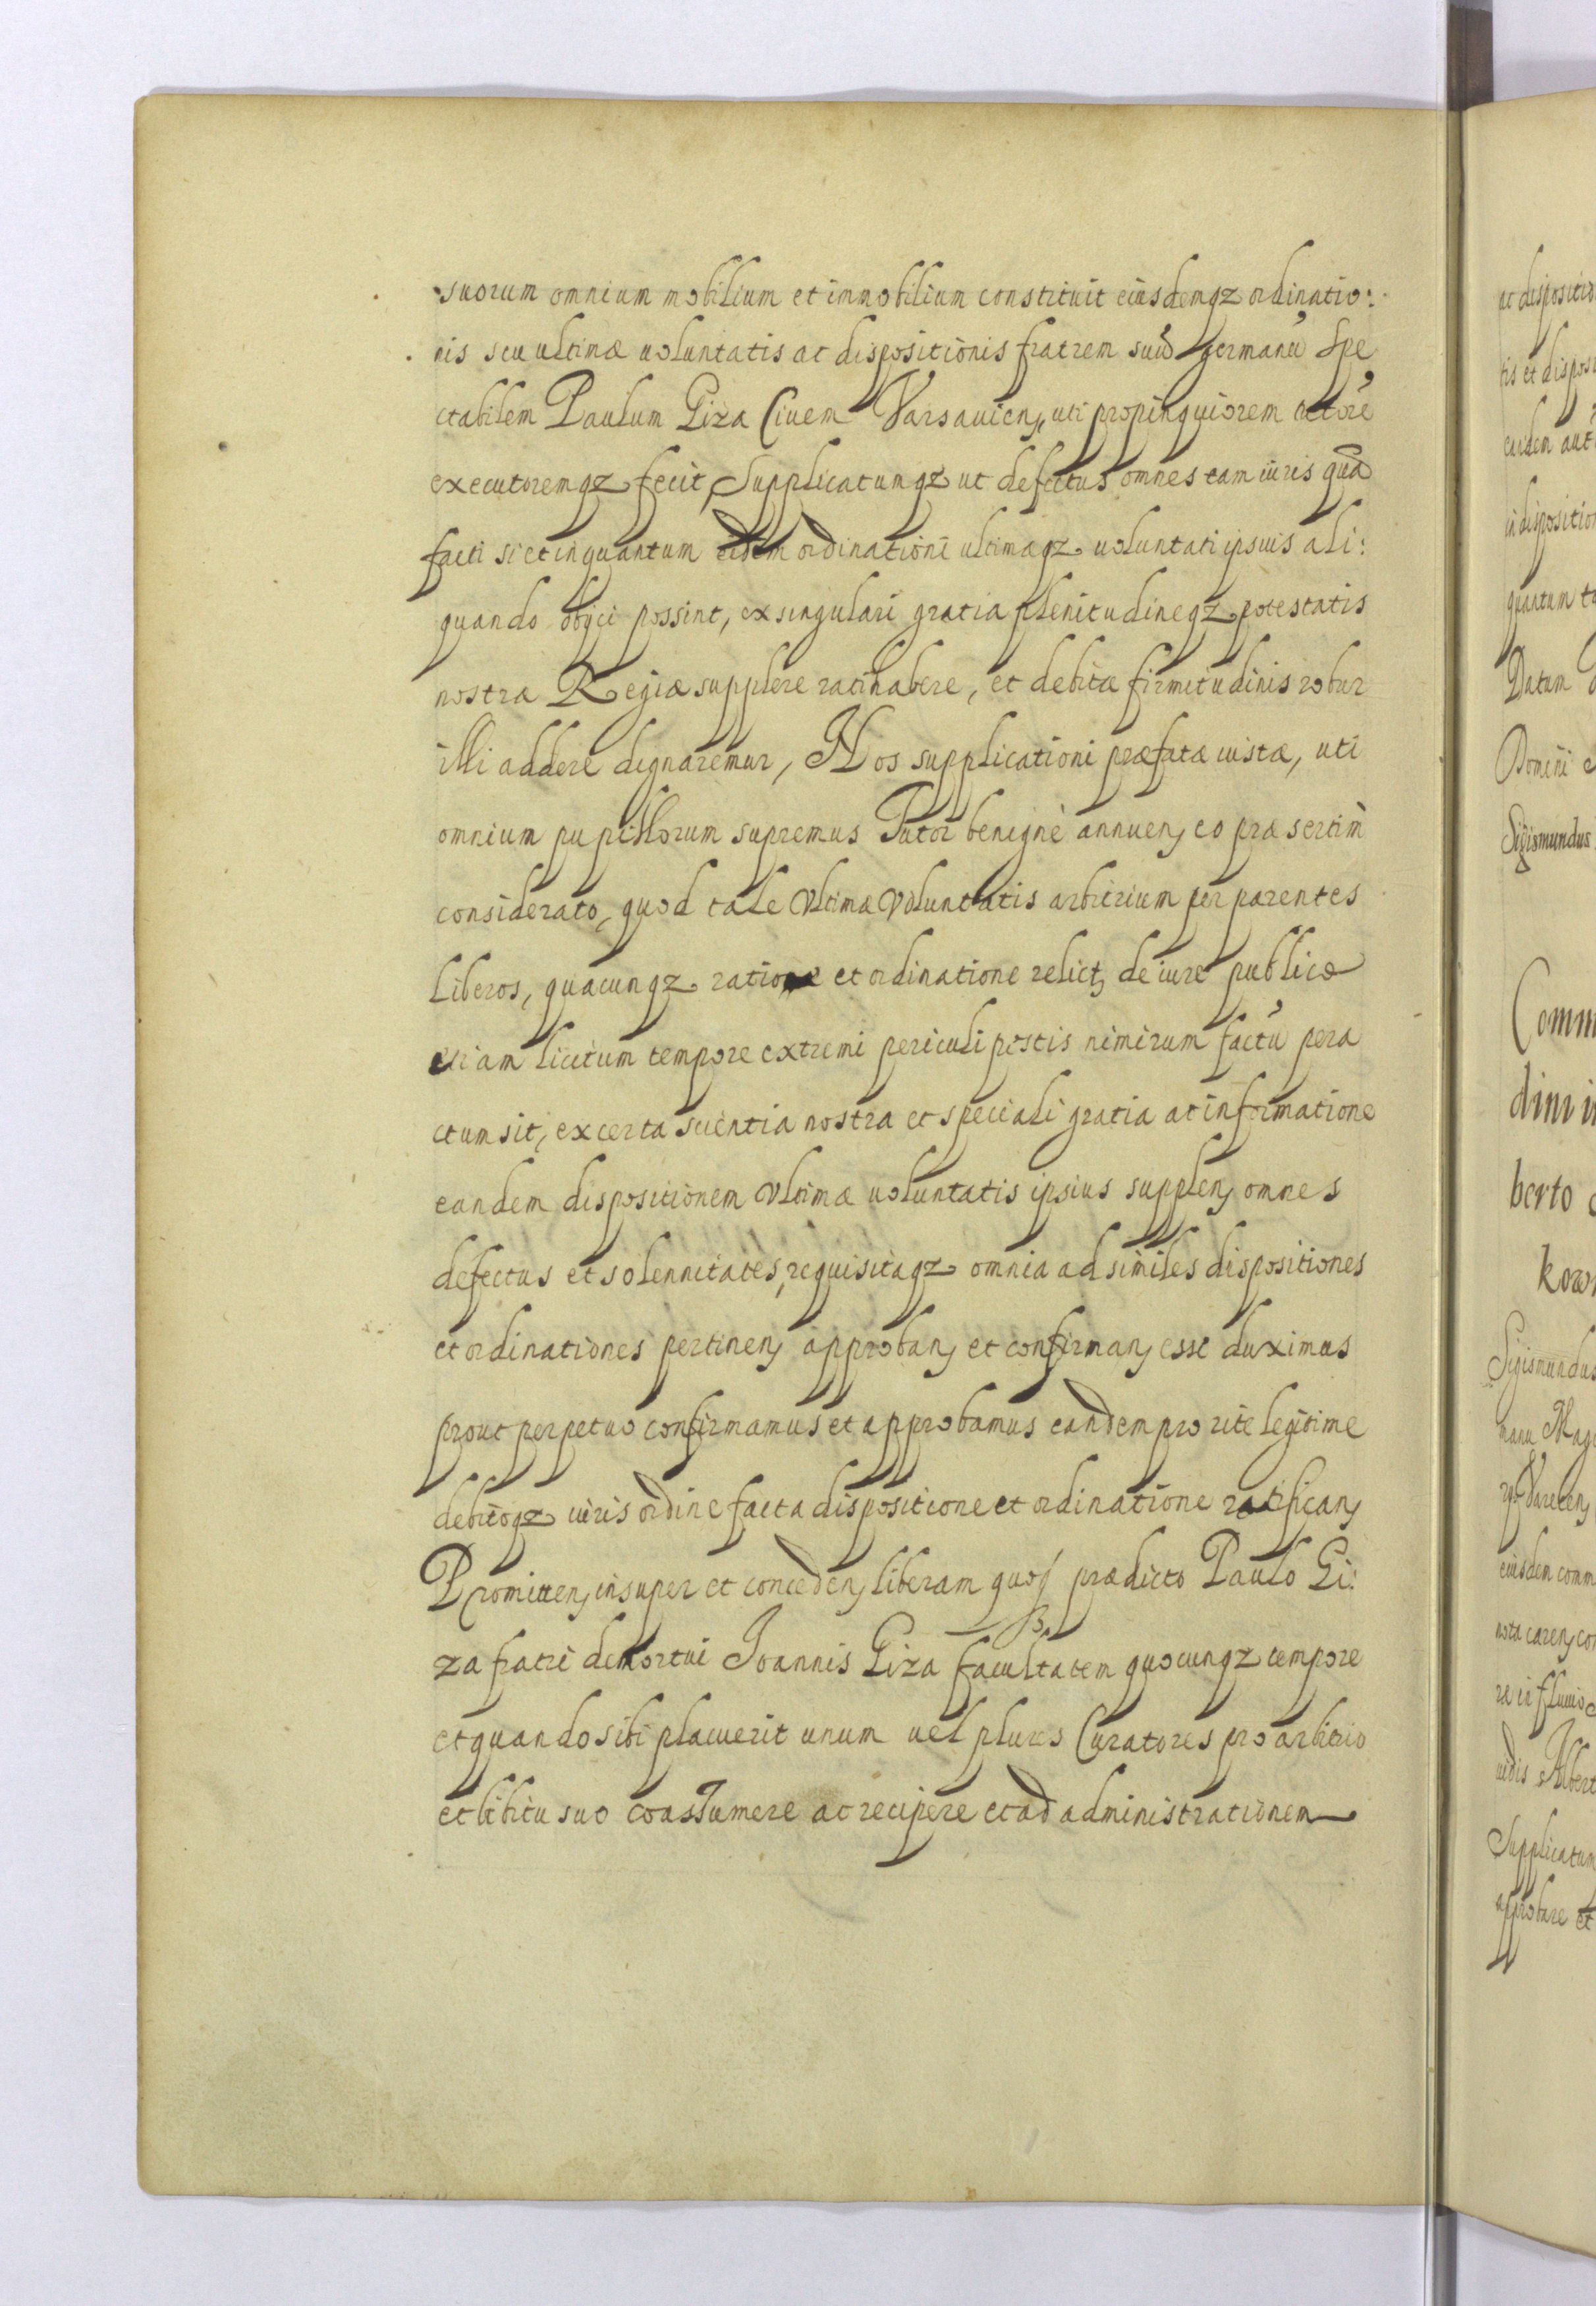 suorum omnium mobilium et immobilium constituit eiusdemqz ordinatio:
nis seu ultimæ uoluntatis ac dispositionis fratrem suū germanū Spe
ctabilem Paulum Giza Ciuem Varsauien, uti propinquiorem tutorē
executoremqz fecit, Supplicatumqz ut defectus omnes tam iuris quā
facti si et inquantum eidem ordinationi ultimæqz uoluntati ipsius ali:
quando obijci possint, ex singulari gratia plenitudineqz potestatis
nostræ Regiæ supplere rati habere, et debitæ firmitudinis robur
illi addere dignaremur, Nos supplicationi præfatæ iustæ, uti
omnium pupillorum supremus Tutor benignè annuen, eo præsertim
considerato, quod tale Vltimæ Voluntatis arbitrium per parentes
liberos, quacunqz ratione et ordinatione relict, de iure publico
etiam licitum tempore extremi periculi pestis nimirum factū pera
ctum sit, ex certa scientia nostra et speciali gratia ac informatione
eandem dispositionem Vltimæ uoluntatis ipsius supplen, omnes
defectus et solennitates, requisitaqz omnia ad similes dispositiones
et ordinationes pertinen, approban, et confirman, esse duximus
prout perpetuo confirmamus et approbamus eandem pro rite legitime
debitoqz iuris ordine facta dispositione et ordinatione ratifican,
Promitten, insuper et conceden, liberam quoqz prædicto Paulo Gi:
za fratri demortui Joannis Giza facultatem quocunqz tempore
et quando sibi placuerit unum uel plures Curatores pro arbitrio
et libitu suo coassumere ac recipere et ad administrationem
ac dispositio
tis et disposi
in disposition
quantum
Datum
Domini
Sigismundus
Comm
dini
berto
kow
Sigismundus
manu Mag
eiusdem comm
nota caren, co
Albert
Supplicatum
approbare et